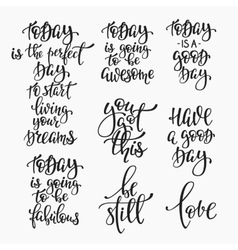 TODAY
is the perfect
DAY
TO START
living
your
DREAMS
TODAY
is going
to be
awesome
TODAY
IS A
GOOD
DAY
TODAY
is going
to be
fabulous
you
got
this
HAVE
A GOOD
DAY
be
still
love